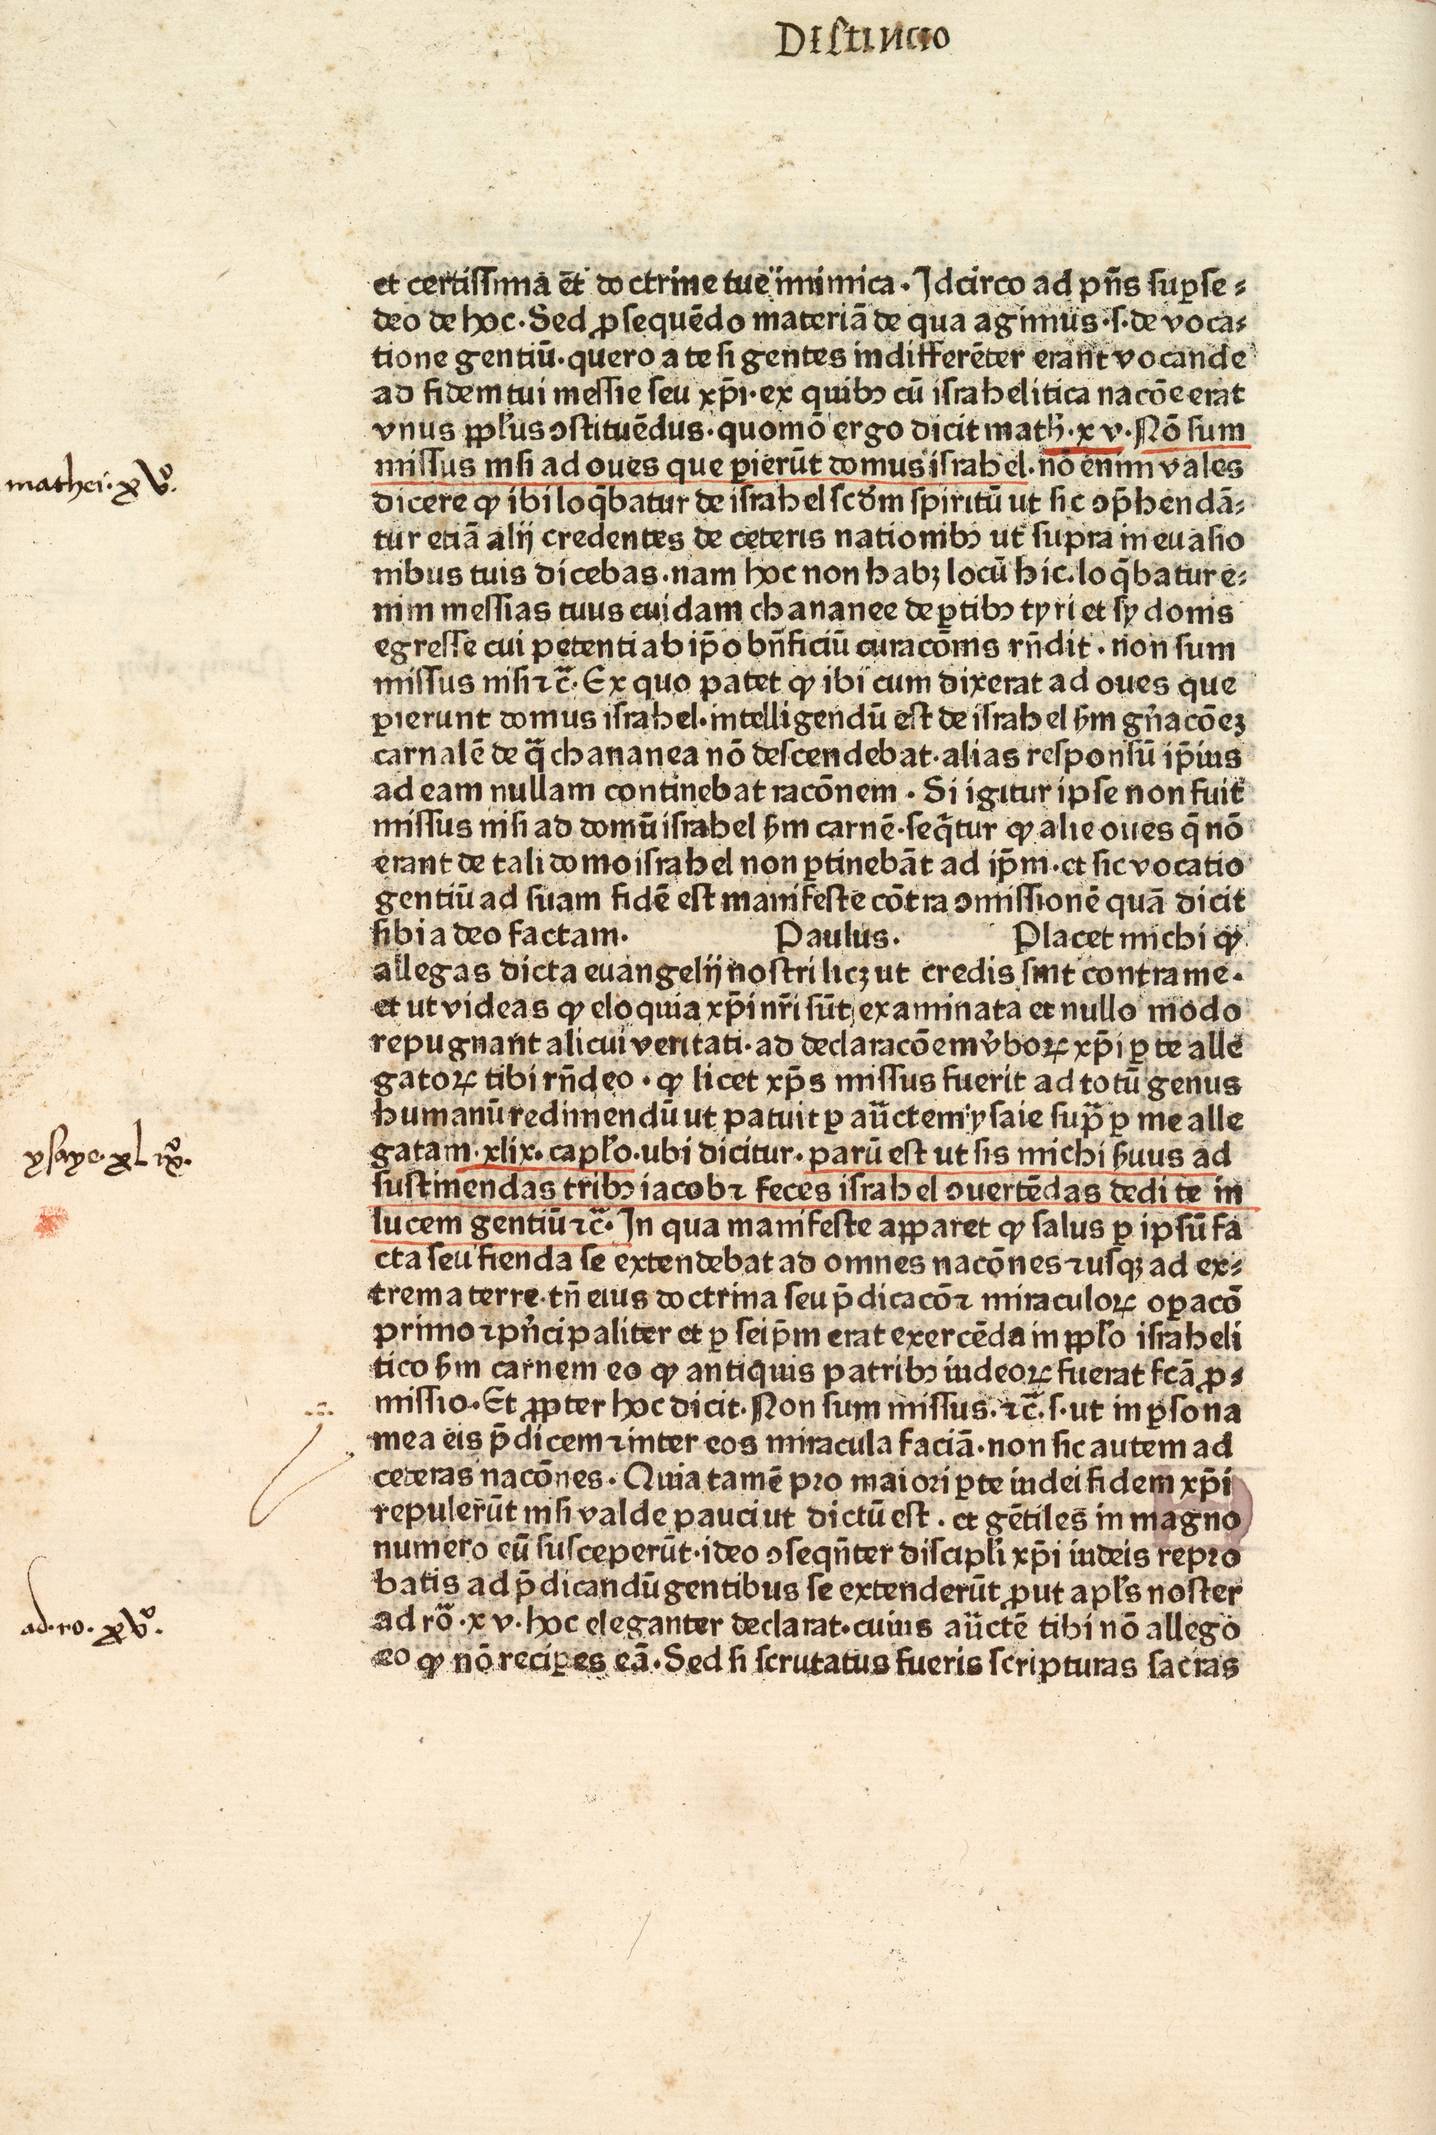 Distincio
et certissimā ēt doctrine tue inimica. Idcirco ad pn̄s suꝑse⸗
deo de hoc. Sed ꝓsequēdo materiā de qua agimus .s. de voca⸗
tione gentiū. quero a te si gentes indifferēter erant vocande
ad fidem tui messie seu xp̄i. ex quibꝰ cū israhelitica nacōe erat
vnus ppl̄us ꝯstituēdus. quomō ergo dicit math̄. xv. Nō sum
missus nisi ad oues que ꝑierūt domus israhel. nō enim vales
mathei. xvº.
dicere ꝙ ibi loq̄batur de israhel scd̄m spiritū ut sic ꝯp̄hendā⸗
tur etiā alij credentes de ceteris nationibꝰ ut supra in euasio
nibus tuis dicebas. nam hoc non habꝫ locū hic. loq̄batur e⸗
nim messias tuus cuidam chananee de ꝑtibꝰ tyri et sydonis
egresse cui petenti ab ip̄o bn̄ficiū curacōnis rn̄dit. non sum
missus nisi ⁊c̄. Ex quo patet ꝙ ibi cum dixerat ad oues que
ꝑierunt domus israhel. intelligendū est de israhel s̄m gn̄acōeꝫ
carnalē de q̄ chananea nō descendebat. alias responsū ip̄ius
ad eam nullam continebat racōnem. Si igitur ipse non fuit
missus nisi ad domū israhel s̄m carnē. seq̄tur ꝙ alie oues q̄ nō
erant de tali domo israhel non ꝑtinebāt ad ip̄m. et sic vocatio
gentiū ad suam fidē est manifeste cōtra ꝯmissionē quā dicit
sibi a deo factam. Paulus. Placet michi ꝙ
allegas dicta euangelij nostri licꝫ ut credis sint contra me.
et ut videas ꝙ eloquia xp̄i nr̄i sūt examinata et nullo modo
repugnant alicui veritati. ad declaracōem v̄boꝝ xp̄i ꝑ te alle
gatoꝝ tibi rn̄deo. ꝙ licet xp̄s missus fuerit ad totū genus
humanū redimendū ut patuit ꝑ auc̄tem ysaie sup̄ ꝑ me alle
gatam. xlix. capl̄o. ubi dicitur. parū est ut sis michi s̄uus ad
ysaye. xlixº.
sustinendas tribꝰ iacob ⁊ feces israhel ꝯuertēdas dedi te in
lucem gentiū ⁊c̄. In qua manifeste apparet ꝙ salus ꝑ ipsū fa
cta seu fienda se extendebat ad omnes nacōnes ⁊ usqꝫ ad ex⸗
trema terre. tn̄ eius doctrina seu p̄dicacō ⁊ miraculoꝝ oꝑacō
primo ⁊ pn̄cipaliter et ꝑ seip̄m erat exercēda in ppl̄o israheli
tico s̄m carnem eo ꝙ antiquis patribꝰ iudeoꝝ fuerat fc̄a ꝓ⸗
missio. Et ꝓpter hoc dicit. Non sum missus. ⁊c̄. s. ut in ꝑsona
mea eis p̄dicem ⁊ inter eos miracula faciā. non sic autem ad
ceteras nacōnes. Quia tamē pro maiori ꝑte iudei fidem xp̄i
repulerūt nisi valde pauci ut dictū est. et gētiles in magno
numero eū susceperūt. ideo ꝯseqn̄ter discipl̄i xp̄i iudeis repro
batis ad p̄dicandū gentibus se extenderūt ꝓut apl̄s noster
ad ro̅. xv. hoc eleganter declarat. cuius auc̄tē tibi nō allego
ad. ro. xvº.
eo ꝙ nō reciꝑes eā. Sed si scrutatus fueris scripturas sacras